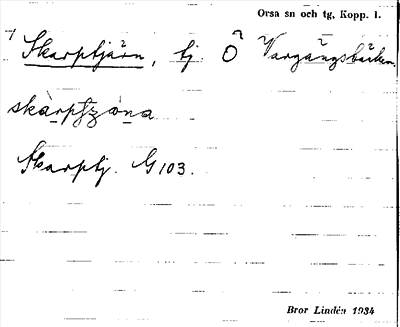 Orsa sn och tg, Kopp. l.
Skarptjärn, tj. Ö Vargångsbäcken
Skarptj. G 103.
Bror Lindén 1934